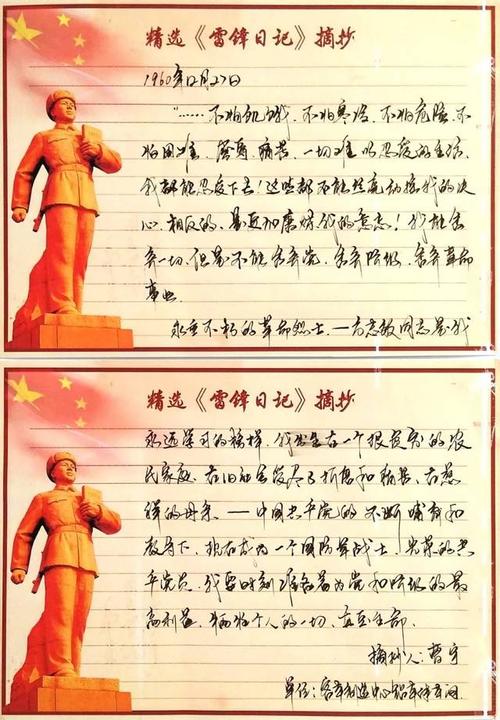 精选《雷锋日记》摘抄
1960年12月27日
“……不怕饥饿，不怕寒冷，不怕危险，不
怕困难。屈辱，痛苦，一切难以忍受的生活，
我都能忍受下去！这些都不能丝毫动摇我的决
心，相反的，是更加磨炼我的意志！我能舍
弃一切，但是不能舍弃党，舍弃阶级，舍弃革命
事业。
永垂不朽的革命烈士——方志敏同志是我
精选《雷锋日记》摘抄
永远学习的榜样。我出生在一个很贫穷的农
民家庭，在旧社会受尽了折磨和痛苦。在慈
祥的母亲——中国共产党的不断哺育和
教导下，现在成为一个国防军战士，光荣的共
产党员，我要时刻准备着为党和阶级的最
高利益，牺牲个人的一切，直至生命。
摘抄人：曹宇
单位：客车制造中心铝车体车间